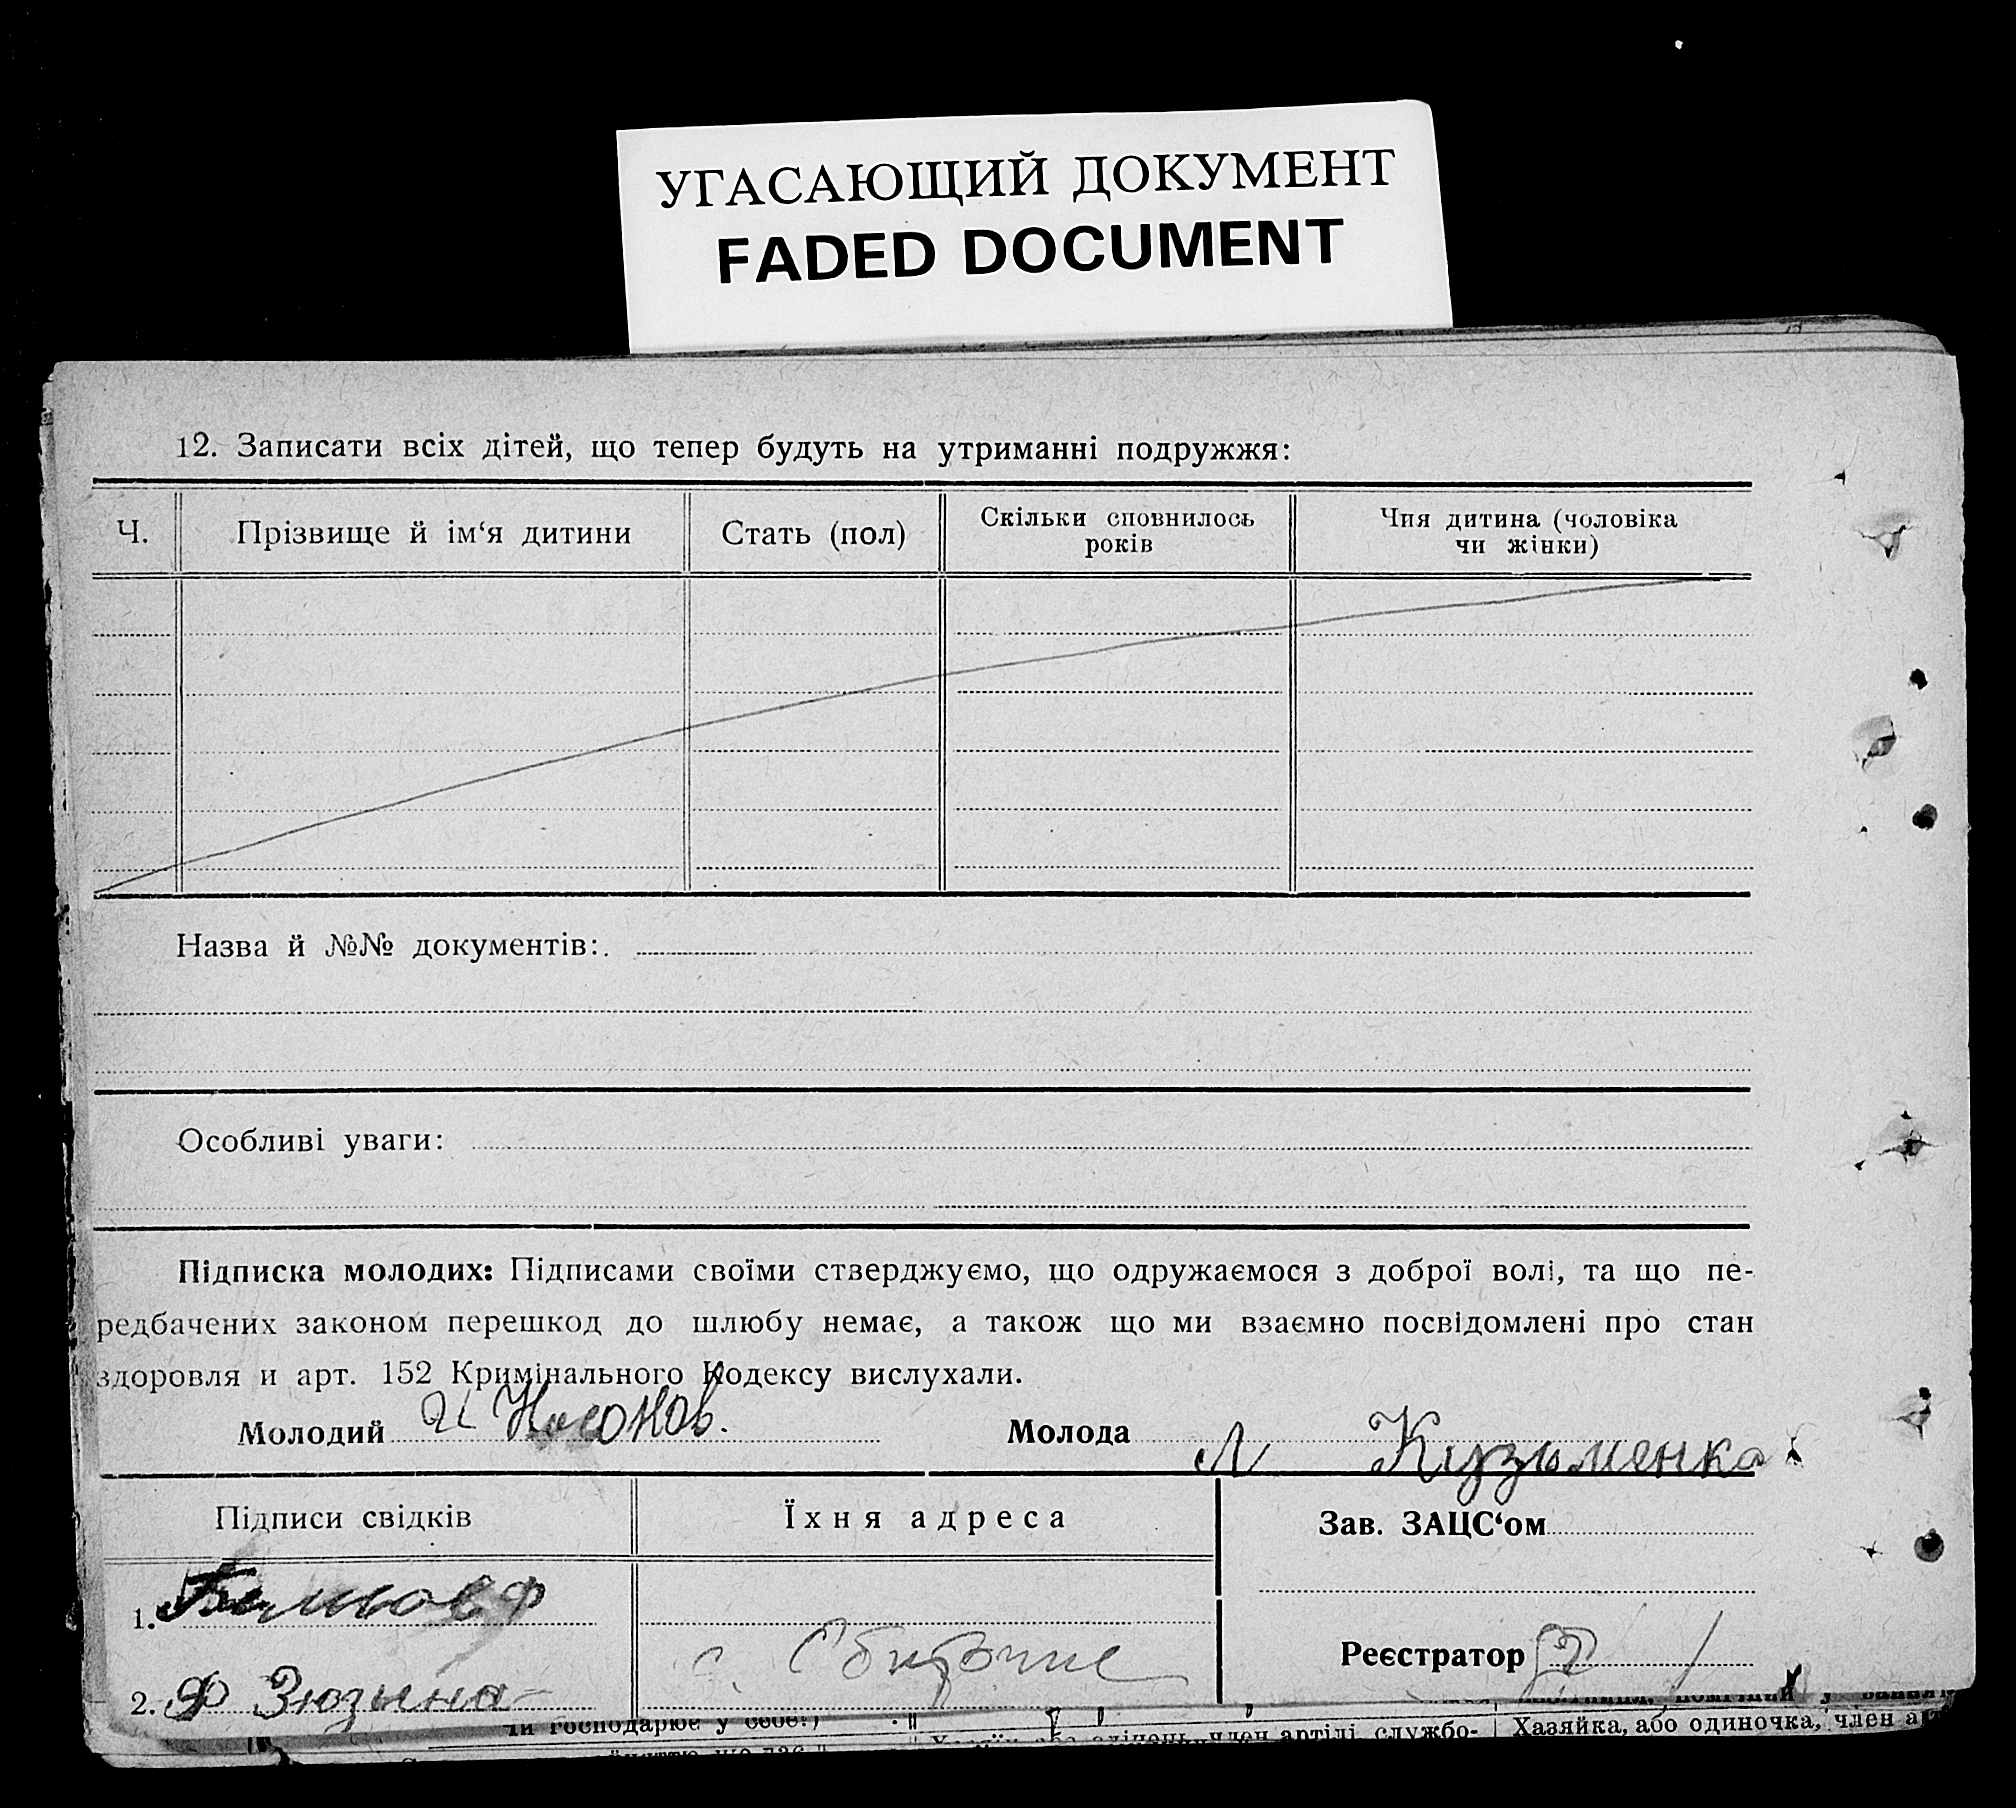 УГАСАЮЩИЙ ДОКУМЕНТ
FADED DOCUMENT
12. Записати всіх дітей, що тепер будуть на утриманні подружжя:
Ч.
Прізвище й ім‘я дитини
Стать (пол)
Скільки сповнилось
років
Чия дитина (чоловіка
чи жінки)
Назва й №№ документів:
Особливі уваги:
Підписка молодих: Підписами своїми стверджуємо, що одружаємося з доброї волі, та що пе-
редбачених законом перешкод до шлюбу немає, а також що ми взаємно посвідомлені про стан
здоровля и арт. 152 Кримінального Кодексу вислухали.
Молодий И Носонов.
Молода Л Кузьменка
Підписи свідків
Їхня адреса
Зав. ЗАЦС‘ом
1.
Реєстратор
2. Ф Зюзына
с.
чи господарює у себе?)
член артілі, службо-
Хазяйка, або одиночка, член